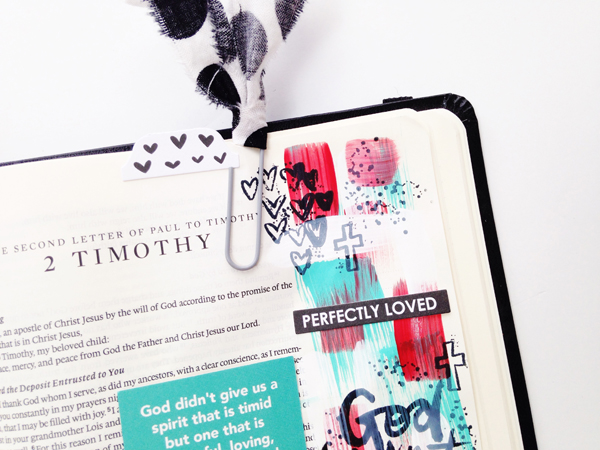 E SECOND LETTER OF PAUL TO TIMOTHY
2 TIMOTHY
, an apostle of Christ Jesus by the will of God according to the promise of the
that is in Christ Jesus,
Timothy, my beloved child:
ace, mercy, and peace from God the Father and Christ Jesus our Lord.
rd the Deposit Entrusted to You
thank God whom I serve, as did my ancestors, with a clear conscience, as I remem-
you constantly in my prayers
that I may be filled with joy.
in your grandmother Lois and
For this reason I remi
PERFECTLY LOVED
God didn't give us a
spirit that is timid
but one that is
loving,
God